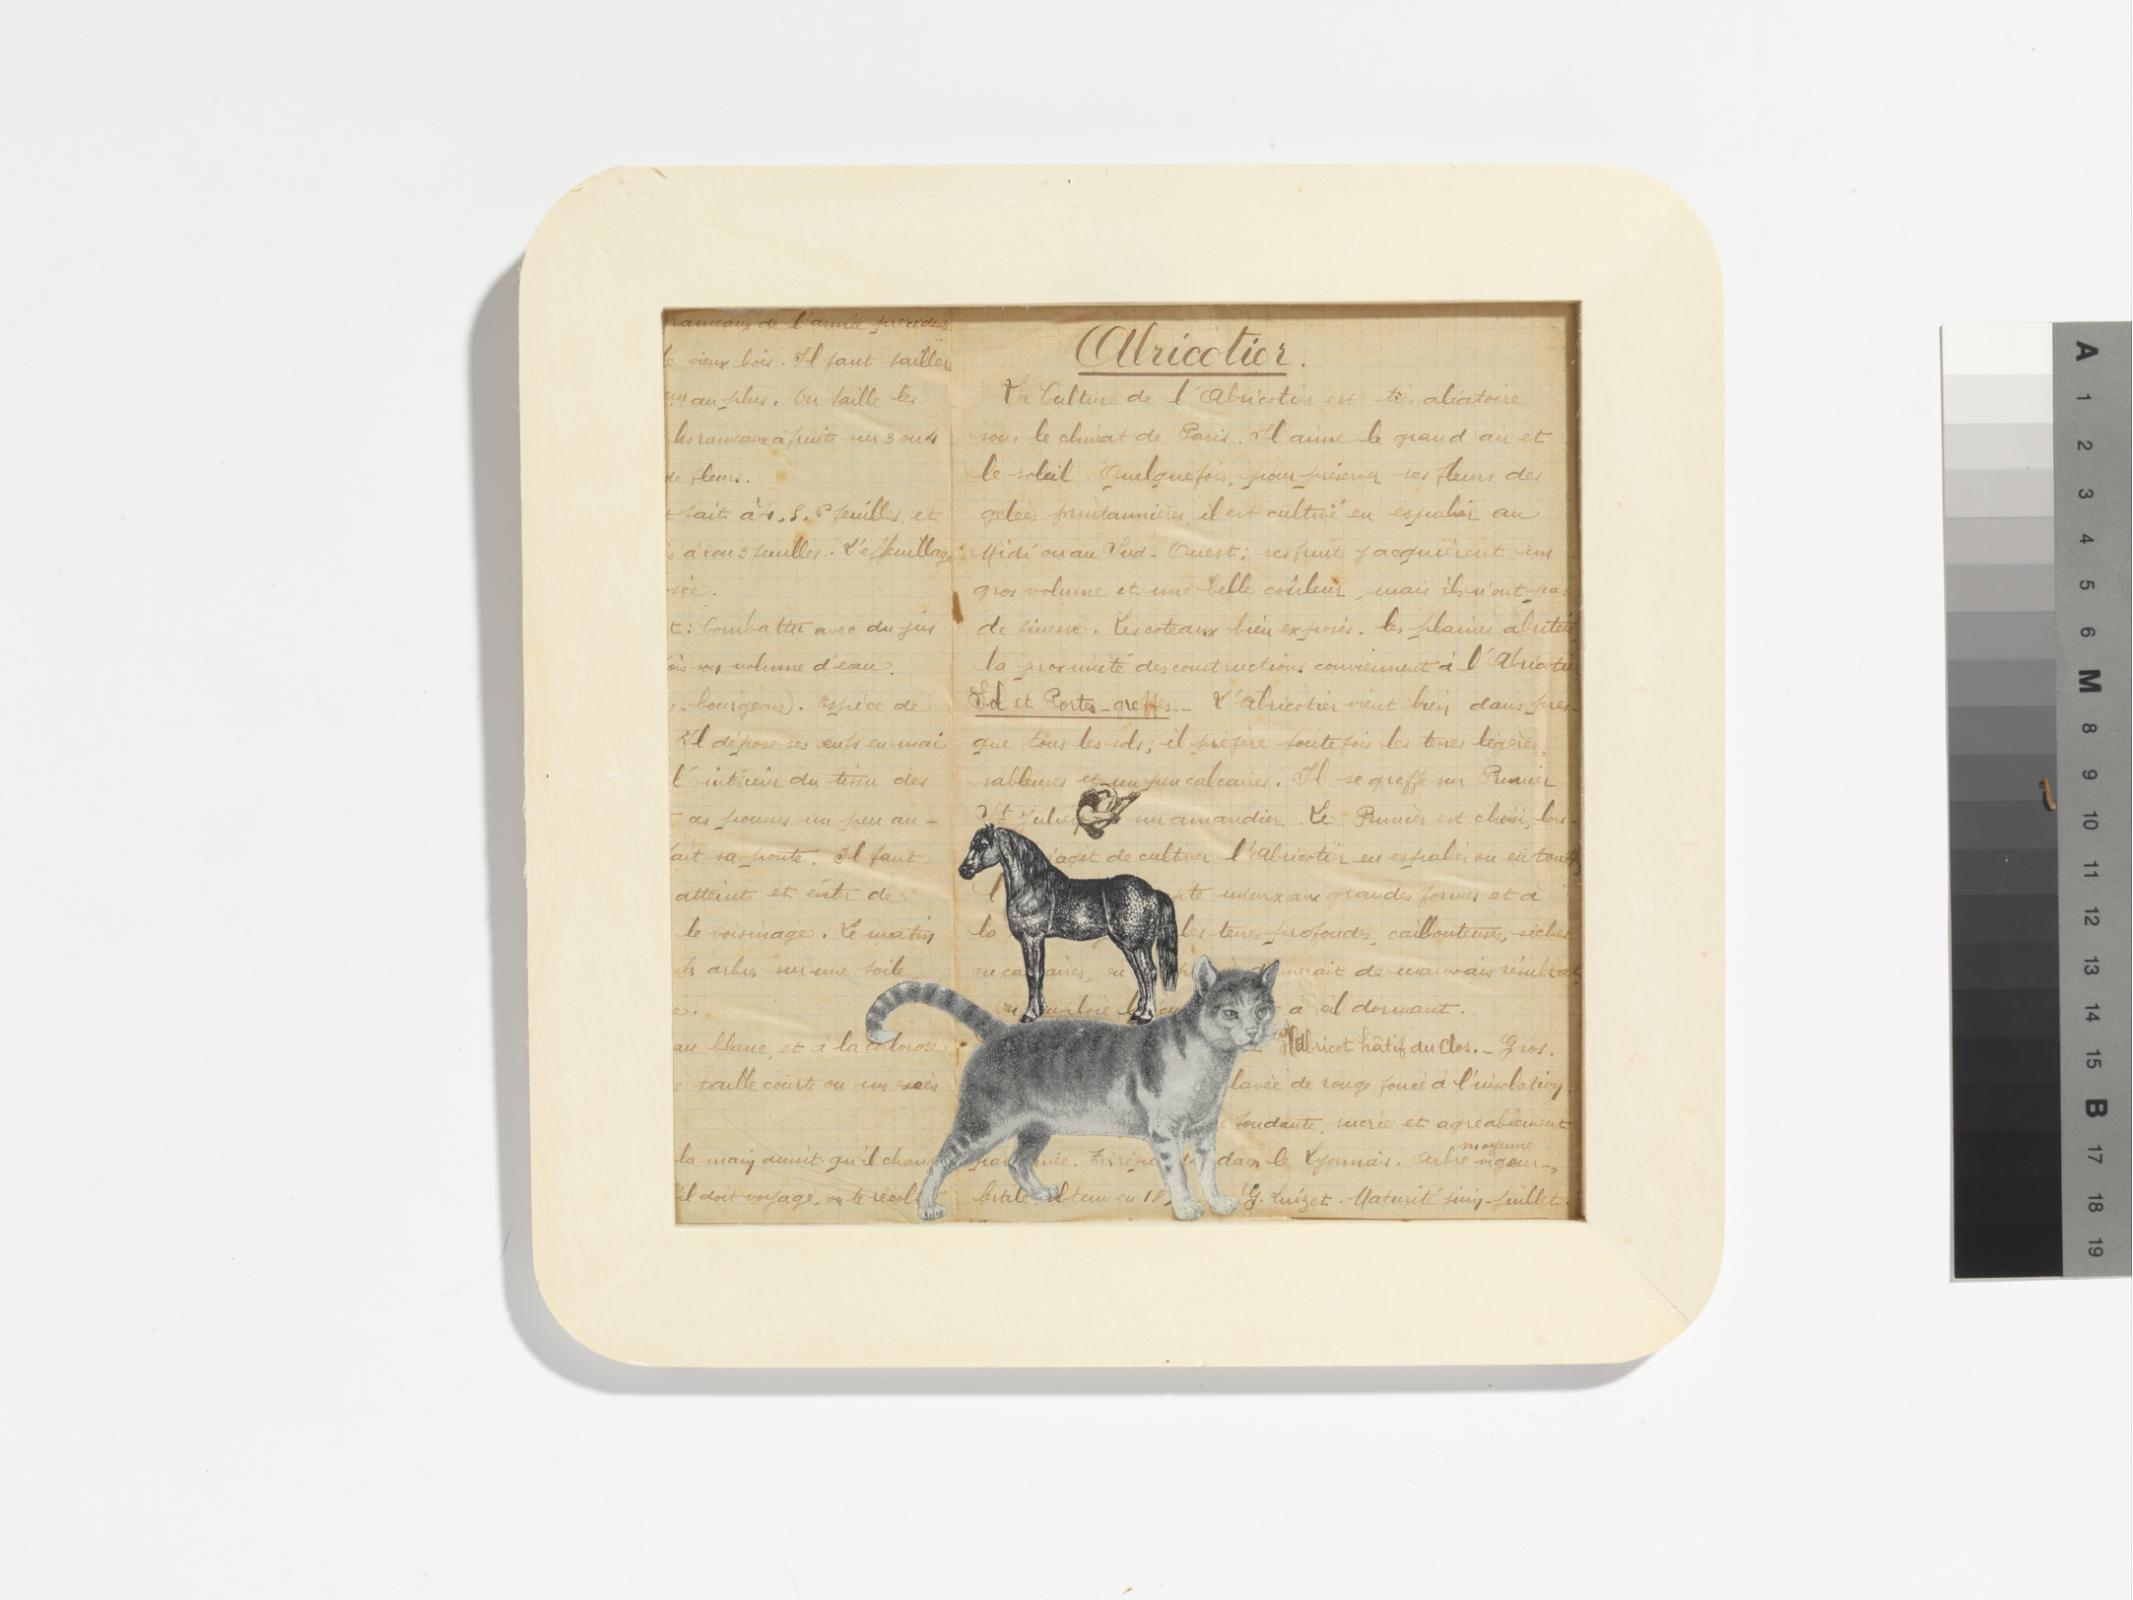 rameaux de l'année précéden
le vieux bois. Il faut tailler
au plus. On taille les
les rameaux à fruits sur 3 ou 4
de fleurs.
fait à 4, 5, 6 feuilles, et
à 2 ou 3 feuilles. L'effeuillage
sée.
t: Combattre avec du jus
fois son volume d'eau.
bourgeons). Espèce de
Il dépose ses œufs en mai
l'intérieur du tissu des
as pousses un peu au-
ait sa ponte. Il faut
atteints et
le voisinage. Le matin
arbres sur une toile
e.
au blanc, et à la chlorose
taille courte ou un
la main aussit qu'il chan
il doit voyage, on le récolt
Abricotier.
La Culture de l'Abricotier est très aléatoire
sous le climat de Paris. Il aime le grand air et
le soleil. Quelquefois, pour préserver ses fleurs des
gelées printannières il est cultivé en espalier au
Midi ou au Sud-Ouest; ses fruits y acquièrent un
gros volume et une belle couleur, mais ils n'ont pas
de finesse. Les coteaux bien exposés. les plaines abritées
la proximité des constructions conviennent à l'Abricotier
Sol et Portes-greffes.- L'abricotier vient bien dans pres-
que tous les sols; il préfère toutefois les terres légères,
sableuses et un peu calcaires. Il se greffe sur Prunier
St Julien sur amandier. Le Prunier est choisi, lors-
s'agit de cultiver l'Abricotier en espalier ou en
mieux aux grandes formes et à
la les terres profondes, caillouteuses, sèches
ou calcaires, ou donnerait de mauvais résultat
On emploie à œil dormant.
Abricot hâtif du Clos.- Gros.
lavée de rouge foncé à l'insolation.
fondante, sucrée et agréablement
parfumée. dans le Lyonnais. Arbre moyenne vigeur,
fertile obtenu en 18 G. Luizet. Maturité juin-juillet.
A 1 2 3 4 5 6 M 8 9 10 11 12 13 14 15 B 17 18 19